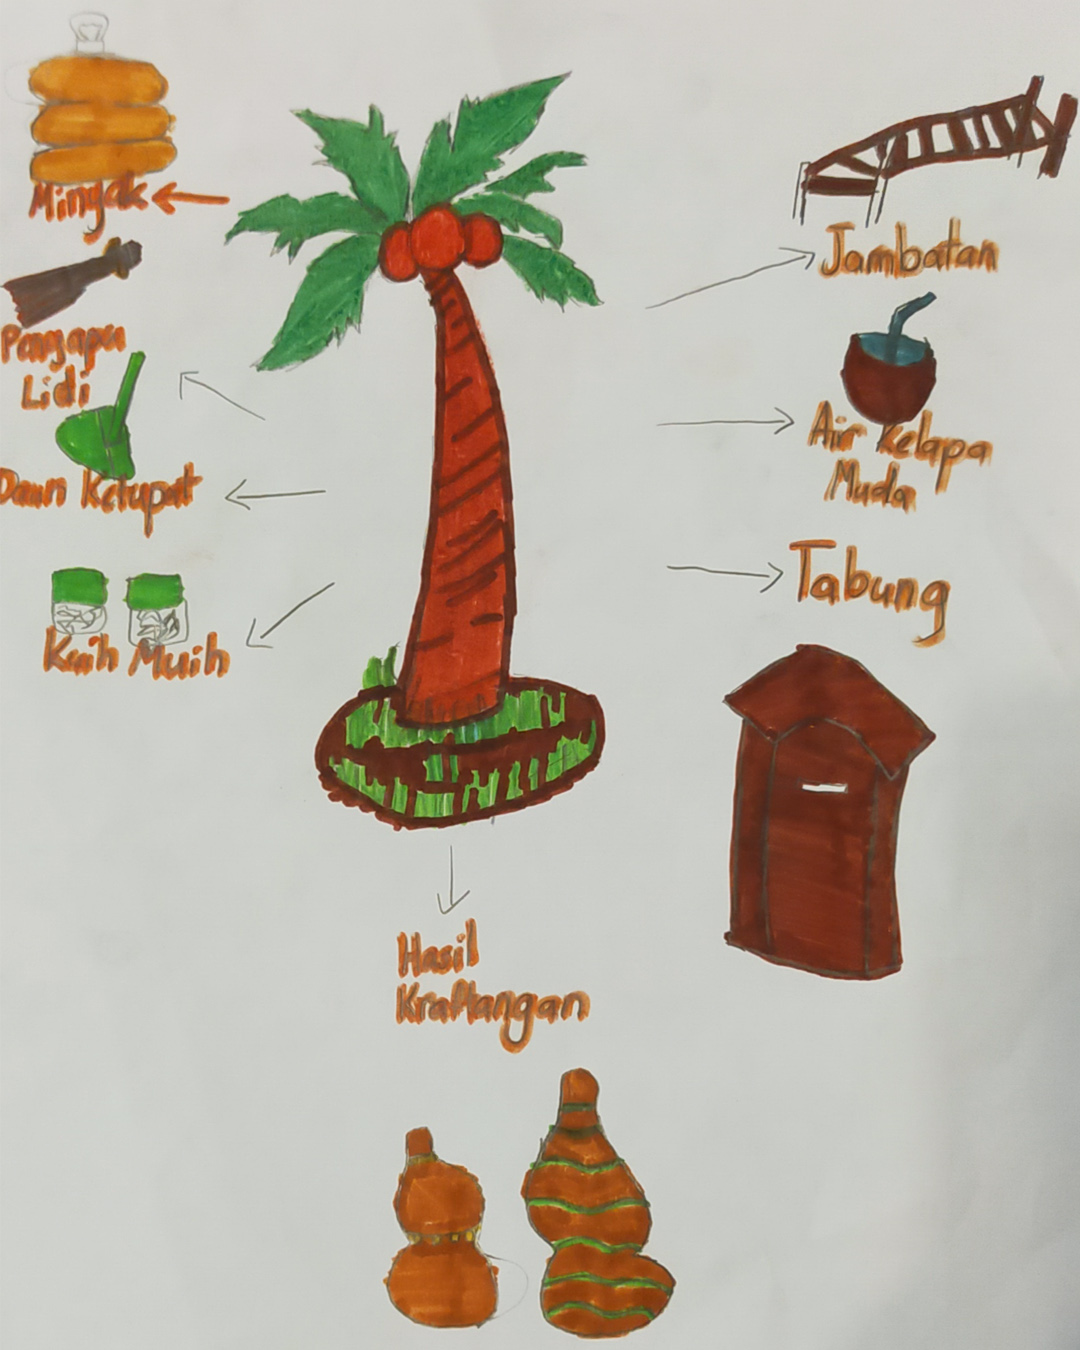 Minyak
Panyapu
Lidi
Daun Ketupat
Kuih Muih
Jambatan
Air Kelapa
Muda
Tabung
Hasil
Kraftangan